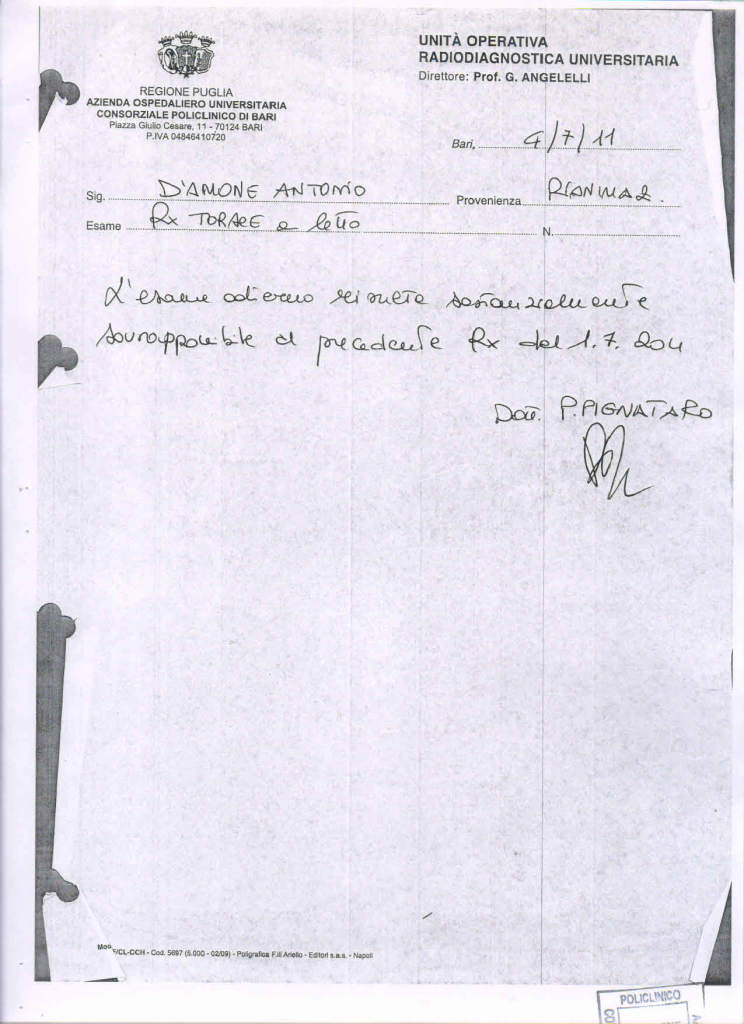 REGIONE PUGLIA
AZIENDA OSPEDALIERO UNIVERSITARIA
CONSORZIALE POLICLINICO DI BARI
Piazza Giulio Cesare, 11 - 70124 BARI
P.IVA 04846410720
UNITÀ OPERATIVA
RADIODIAGNOSTICA UNIVERSITARIA
Direttore: Prof. G. ANGELELLI
Bari, 4/7/11
Sig. D'AMONE ANTONIO Provenienza RIANIMAZ.
Esame Rx TORACE a letto N.
L'esame odierno risulta sostanzialmente
sovrapponibile al precedente Rx del 1.7.2011
Dott. P. PIGNATARO
/CL-CCH - Cod. 5697 (5.000 - 02/09) - Poligrafica F.lli Ariello - Editori s.a.s. - Napoli
POLICLINICO